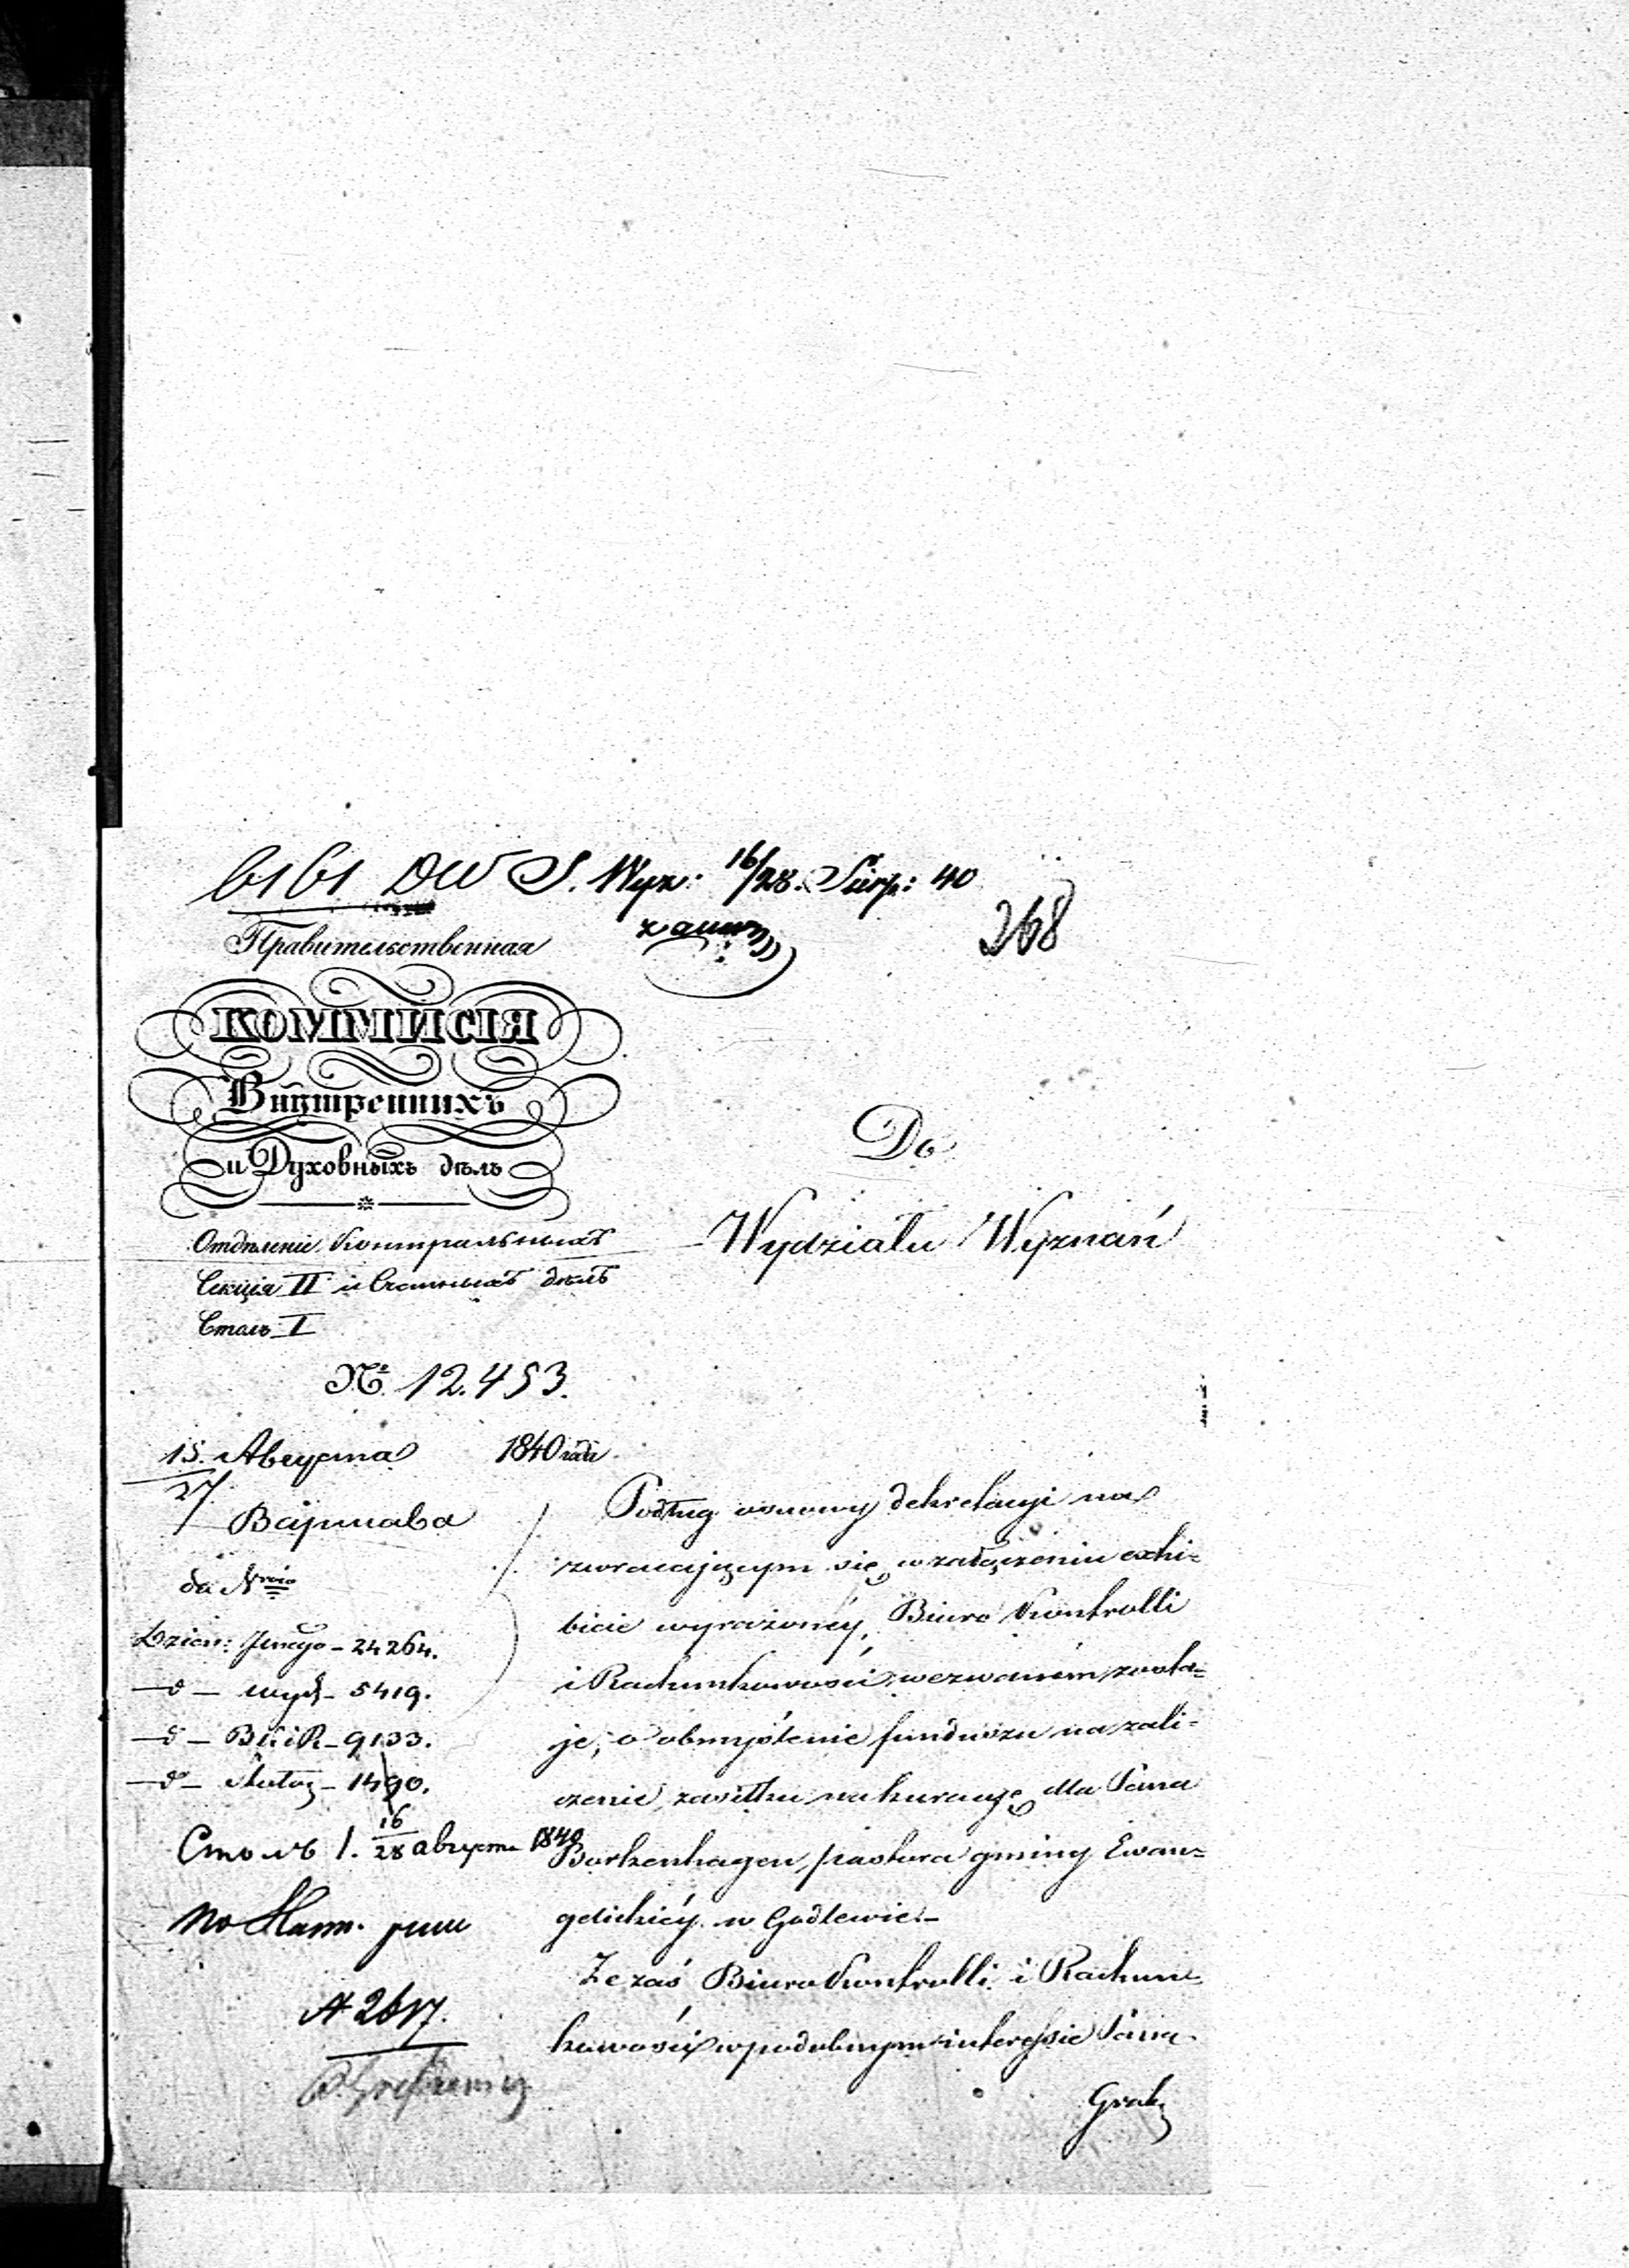 6161 DW S. Wyz: 16/28. Sierp: 40
368
Правительственная
КОММИСІЯ
Внутреннихъ
и Духовныхъ дѣлъ
Отдѣленіе Контрольныхъ
Секція II и Счетныхъ дѣлъ
Столъ I
№ 12.453.
15. Августа 1840 года
27.
Варшава
da Nrów
Dzien: jnego - 24264.
-d- wydz - 5419.
-d- BKiR - 9133.
-d- - 1490.
Столъ 1. 16/28 августа 1840
A 2617.
Do
Wydziału Wyznań
Podług osnowy dekretacyi na
zwracającym się w załączeniu exhi=
bicie wyrażonéy, Biuro Kontrolli
i Rachunkowości wezwaném zosta=
je, o obmyślenie funduszu na zali=
czenie zasiłku na kuracyę dla Pana
Borkenhagen, pastora gminy Ewan=
gelickiéy w Godlewie.-
Że zaś Biuro Kontrolli i Rachun=
kowości w podobnym interessie Pana